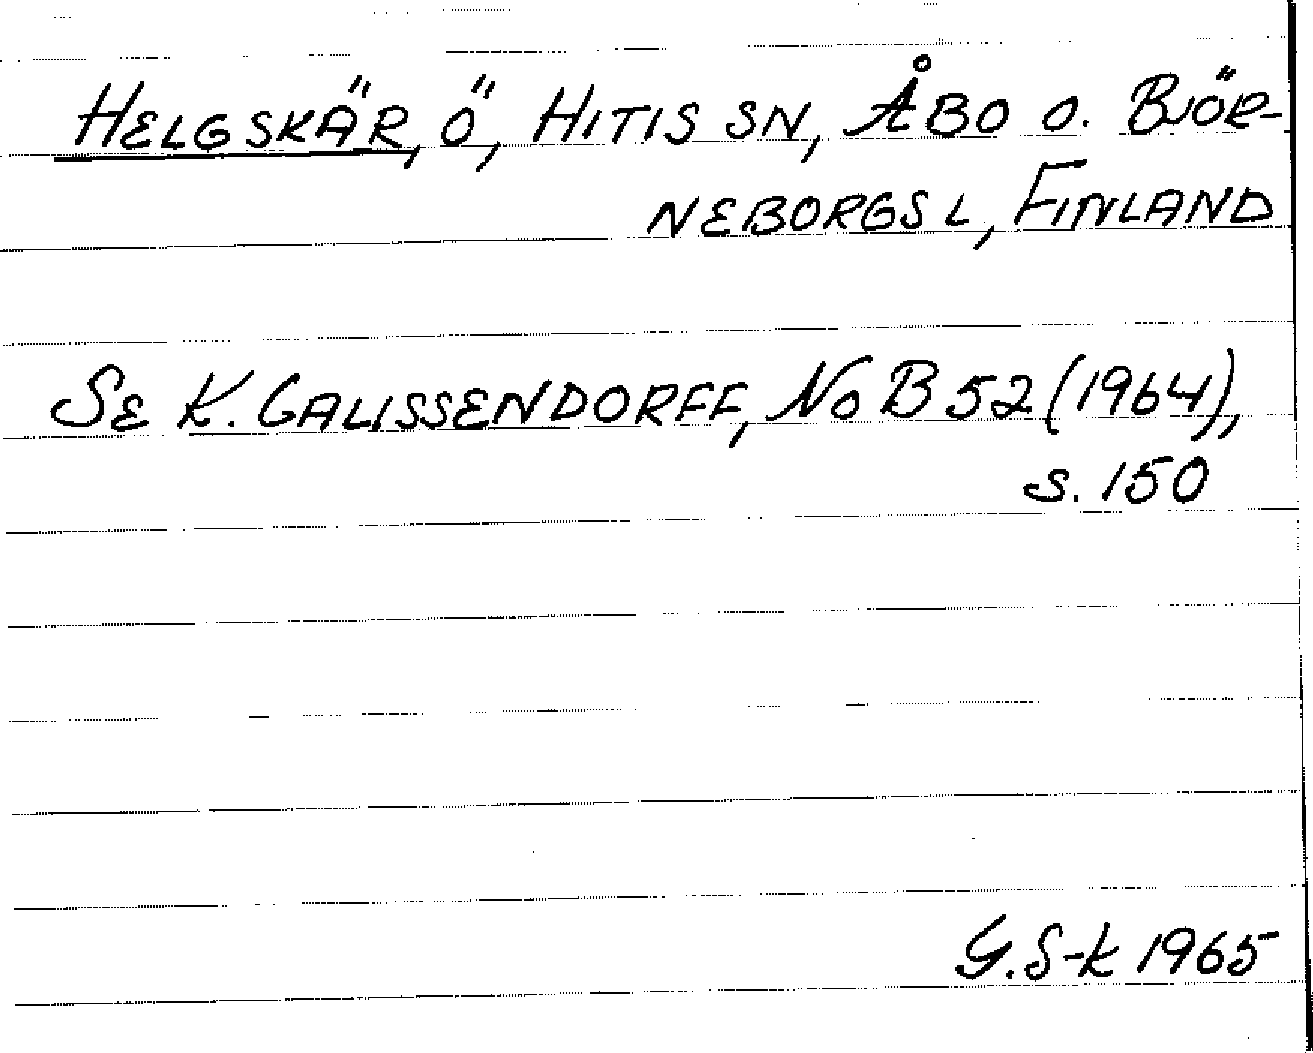 HELGSKÄR, Ö, HITIS SN, ÅBO O. BJÖR-
NEBORGS L, FINLAND
SE K. GALLISSENDORFF, NO B 52 (1964),
s. 150
G. S-k 1965